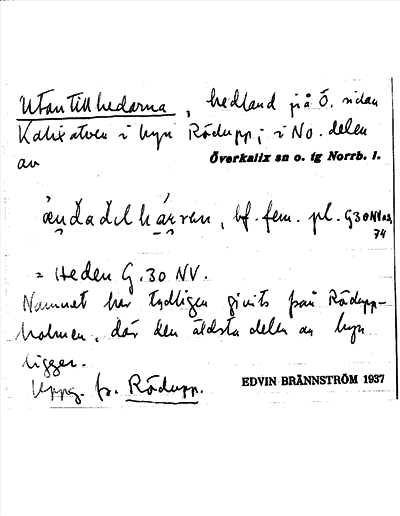 Utantillhedarna, hedland på Ö. sidan
Kalixälven i byn Rödupp; i No. delen
av Överkalix sn o. tg Norrb. l.
bf. fem. pl. G30NV03,
74
= Heden G.30 NV.
Namnet har tydligen givits från Rödupp-
holmen, där den äldsta delen av byn
ligger.
Uppg. fr. Rödupp. EDVIN BRÄNNSTRÖM 1937